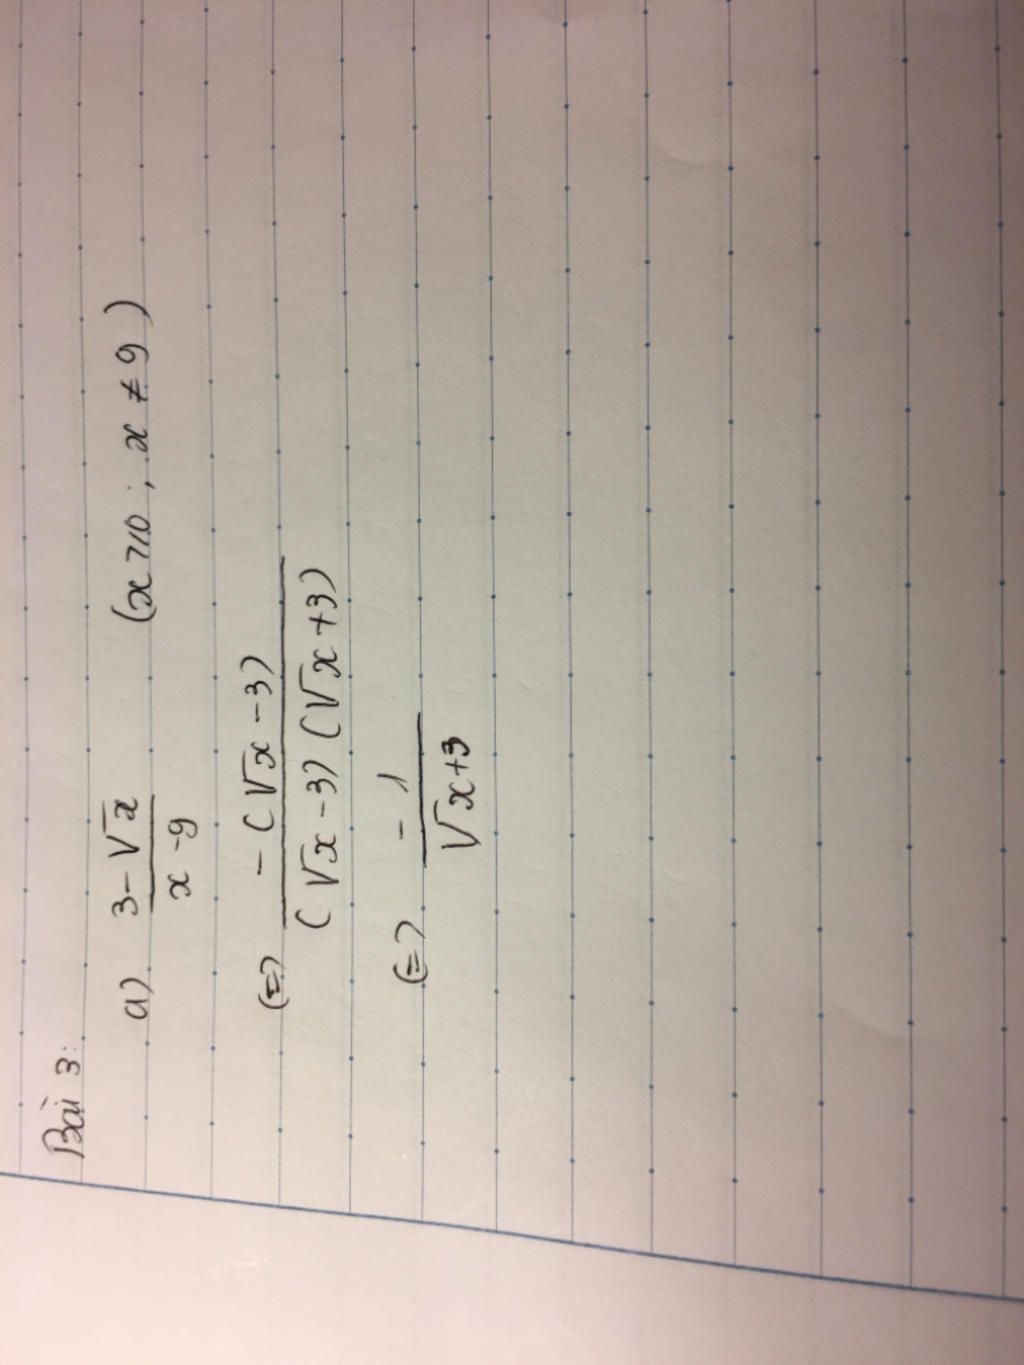 Bài 3:
a) (3-√x)/(x-9) (x≥0; x≠9)
(=) (-(√x-3))/((√x-3)(√x+3))
(=) (-1)/(√x+3)